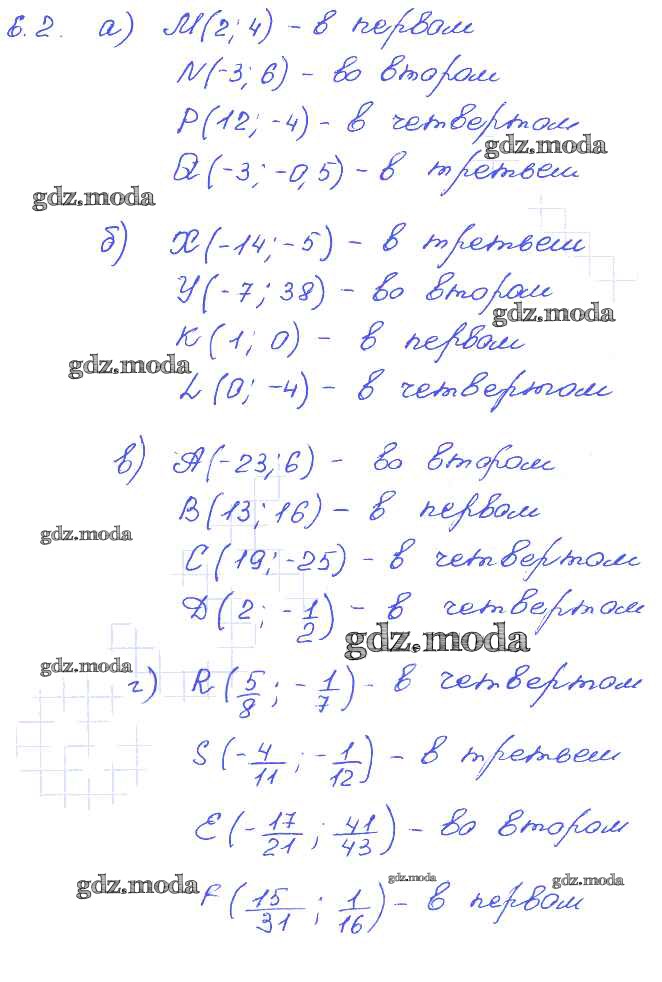 6.2. а) M(2; 4) - в первом
N(-3; 6) - во втором
P(12; -4) - в четвертом
gdz.moda
Q(-3; -0,5) - в третьем
gdz.moda
б) X(-14; -5) - в третьем
Y(-7; 38) - во втором
gdz.moda
K(1; 0) - в первом
gdz.moda
L(0; -4) - в четвертом
в) A(-23; 6) - во втором
B(13; 16) - в первом
gdz.moda
C(19; -25) - в четвертом
D(2; -1/2) - в четвертом
gdz.moda
gdz.moda
г) R(5/8; -1/7) - в четвертом
S(-4/11; -1/12) - в третьем
E(-17/21; 41/43) - во втором
gdz.moda
gdz.moda
gdz.moda
F(15/31; 1/16) - в первом